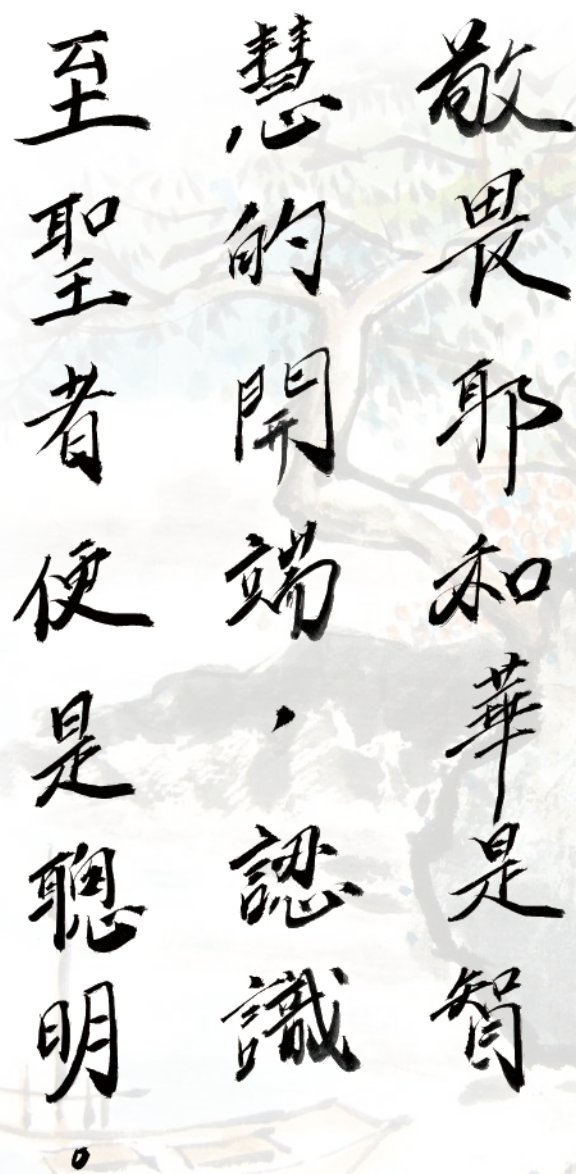 敬畏耶和華是智
慧的開端，認識
至聖者便是聰明。